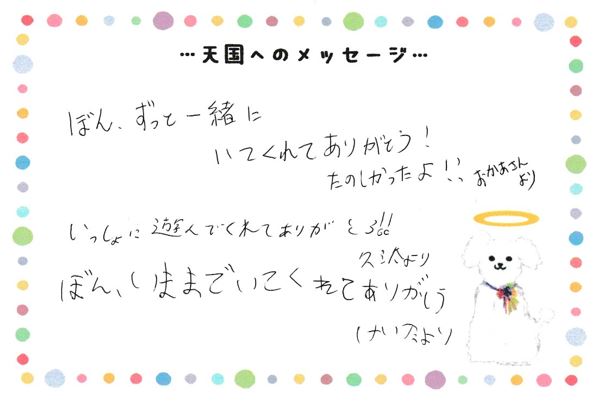 …天国へのメッセージ…
ぼん、ずっと一緒に
いてくれてありがとう!
たのしかったよ!! おかあさんより
いっしょに遊んでくれてありがとう!!!
久汰より
ぼん、いままでいてくれてありがとう
けいたより